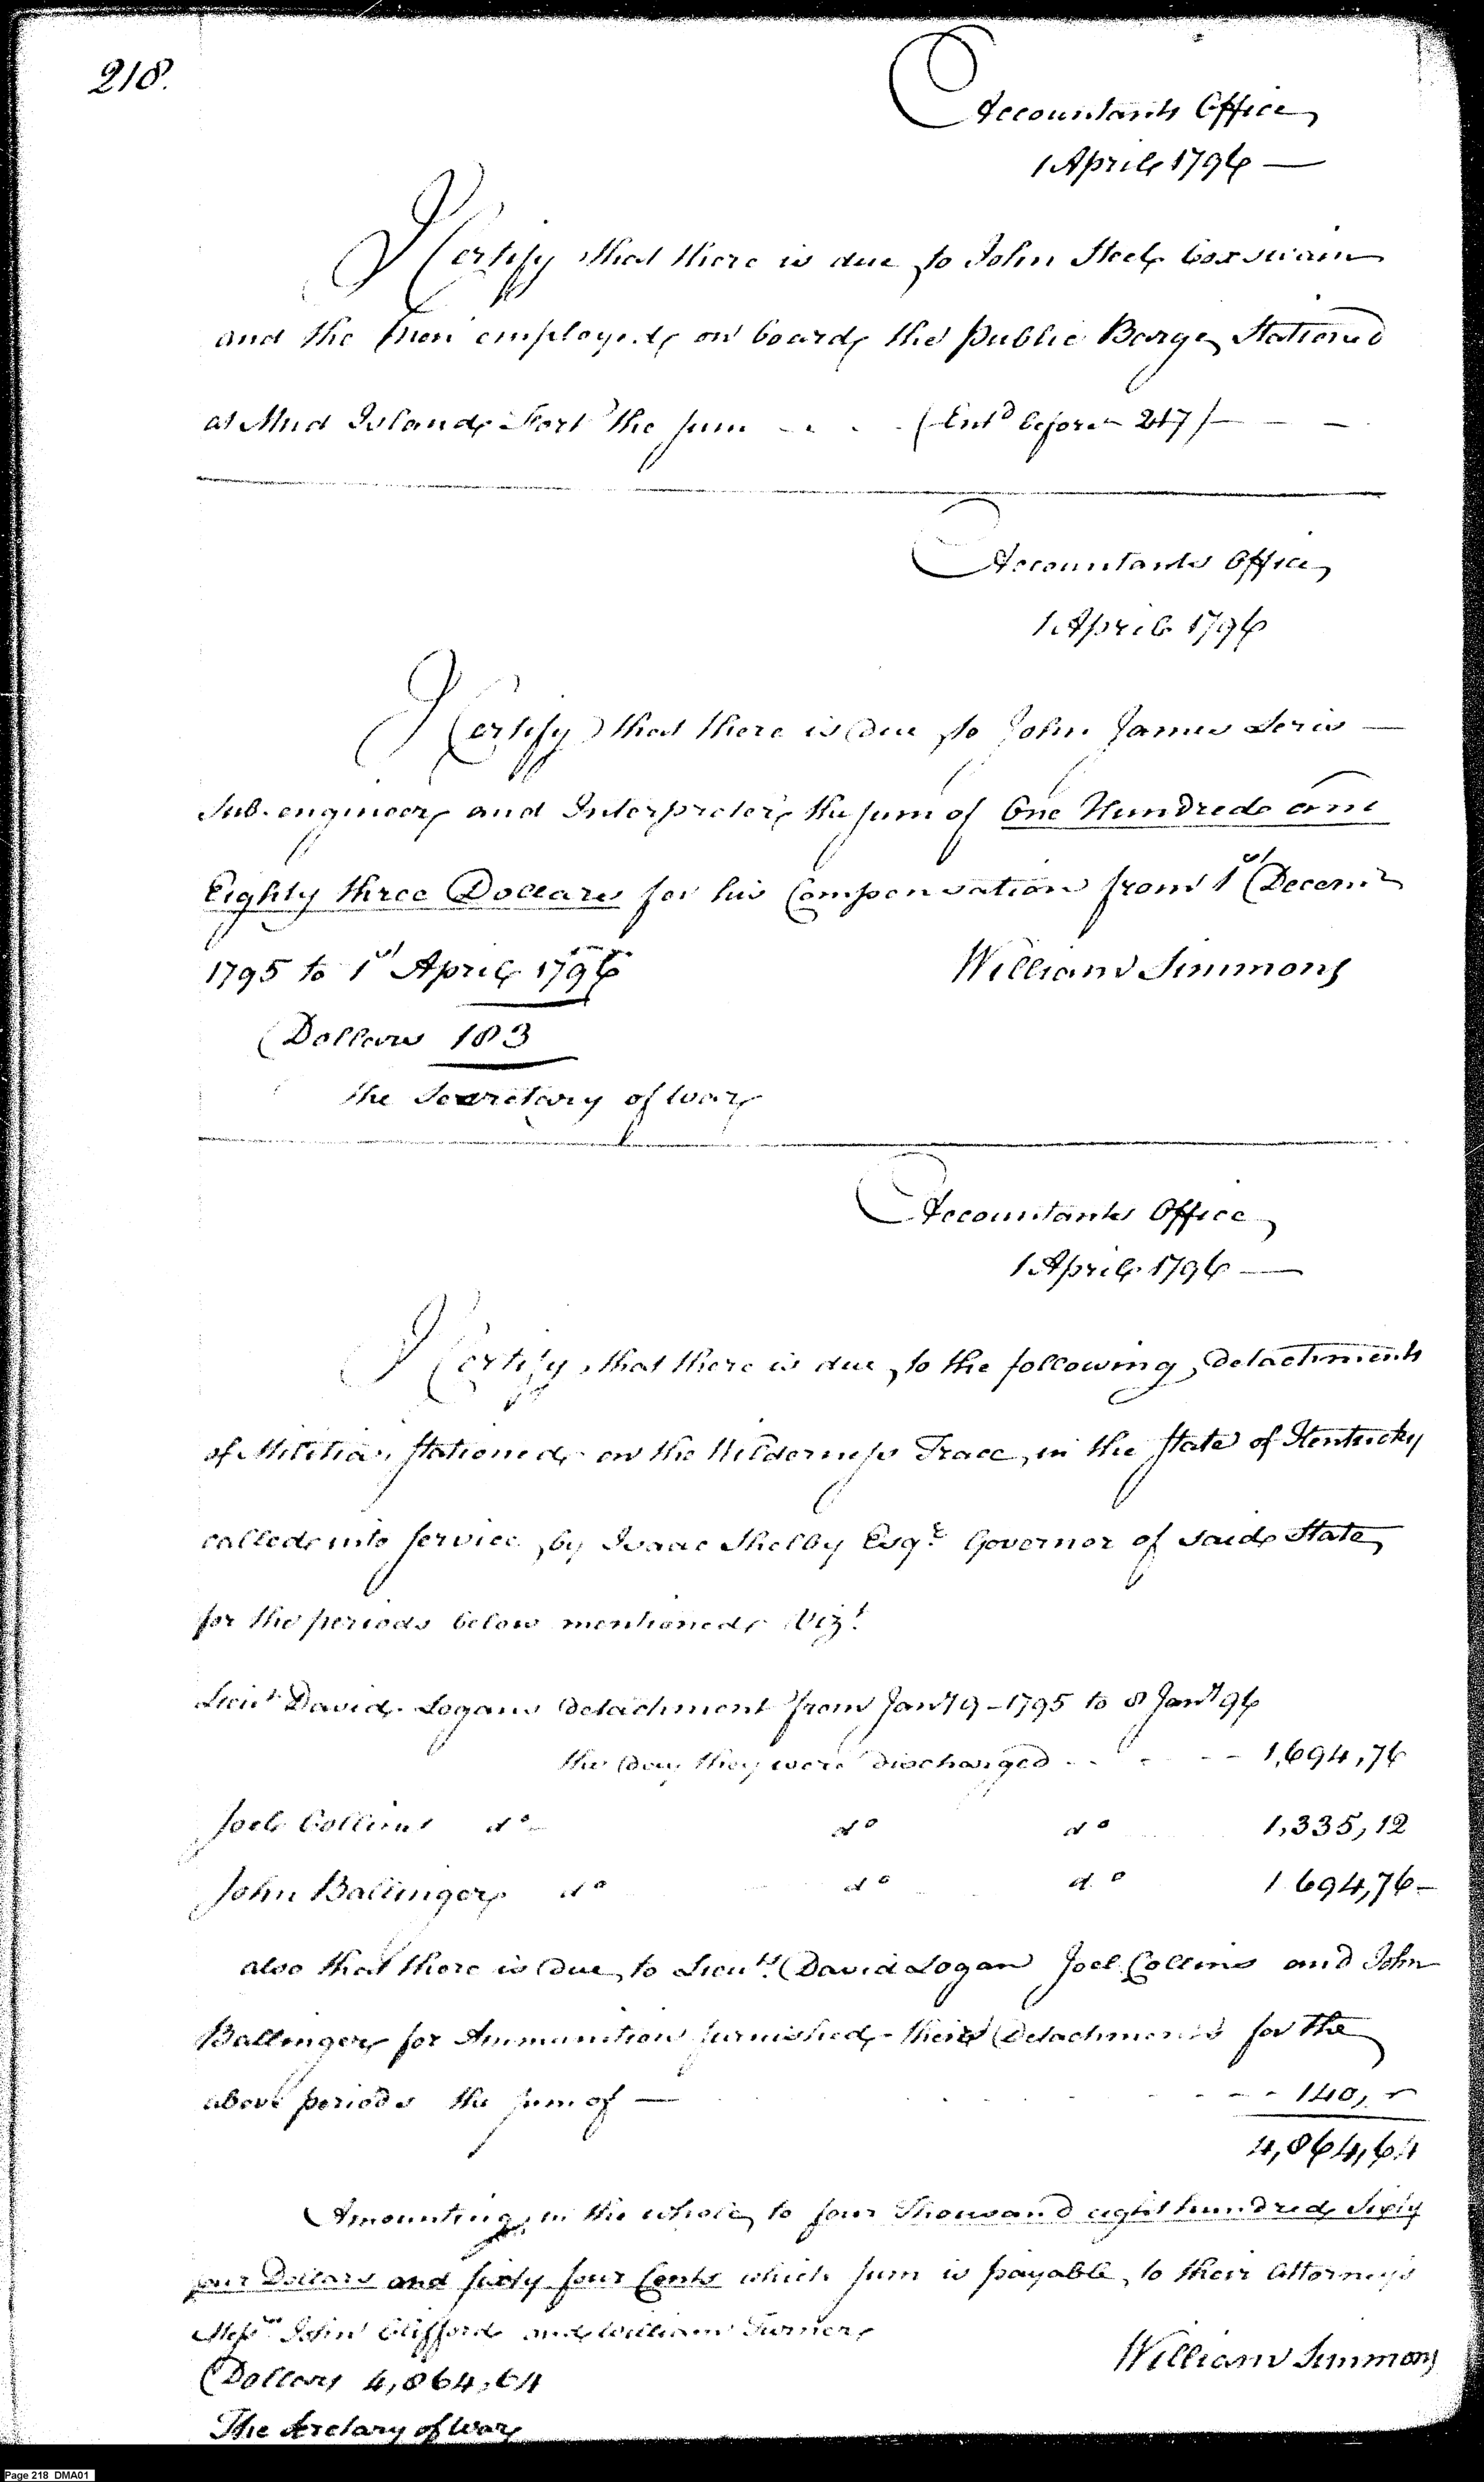 218.
Accountants Office
1 April 1796 —
I Certify that there is due to John Steel Coxswain
and the Men employed on board the public Barge Stationed
at Mud Island Fort the sum - - - (Entd before 217) - -
Accountants Office
1 April 1796
I Certify that there is due to John James Leris —
Sub. engineer and Interpreter the sum of One Hundred and
Eighty three Dollars for his Compensation from 1st Decemr
1795 to 1st April 1796
William Simmons
Dollars 183
the Secretary of War
Accountants Office
1 April 1796 —
I Certify that there is due to the following Detachments
of Militia, stationed on the Wilderness Trace, in the State of Kentucky
called into service by Isaac Shelby Esqr. Governor of said State
for the periods below mentioned Vizt.
Lieut David Logans Detachment from Jany 9 - 1795 to 8 Jany 96
the day they were discharged - - - - 1,694,76
Joel Collins do do do 1,335,12
John Ballinger do do do 1 694,76 -
also that there is due to Lieuts. David Logan Joel Collins and John
Ballinger for Ammunition furnished their Detachments for the
above periods the sum of — - - - 140, -
4,864,64
Amounting in the whole to four Thousand eight hundred Sixty
four Dollars and sixty four Cents which sum is payable to their Attorneys
Messrs John Clifford and William Turner
Dollars 4,864,64
William Simmons
The Secretary of War
Page 218 DMA01